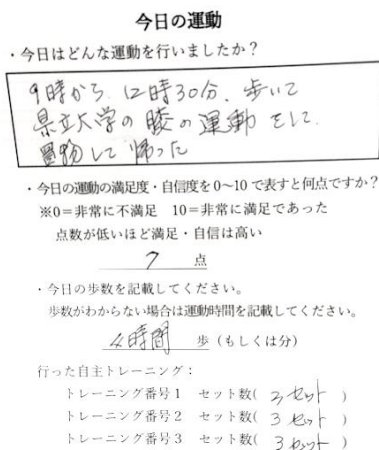 今日の運動
・今日はどんな運動を行いましたか？
9時から 12時30分、歩いて
県立大学の膝の運動をして、
買物して帰った
・今日の運動の満足度・自信度を0～10で表すと何点ですか？
※0＝非常に不満足　10＝非常に満足であった
点数が低いほど満足・自信は高い
7 点
・今日の歩数を記載してください。
歩数がわからない場合は運動時間を記載してください。
4時間 歩（もしくは分）
行った自主トレーニング：
トレーニング番号1　セット数( 3セット )
トレーニング番号2　セット数( 3セット )
トレーニング番号3　セット数( 3セット )